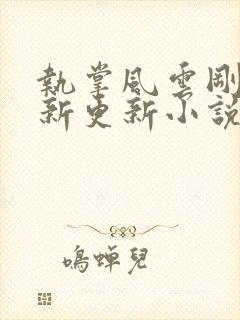 執掌風雲剛
新更新小說
鳴蟬兒